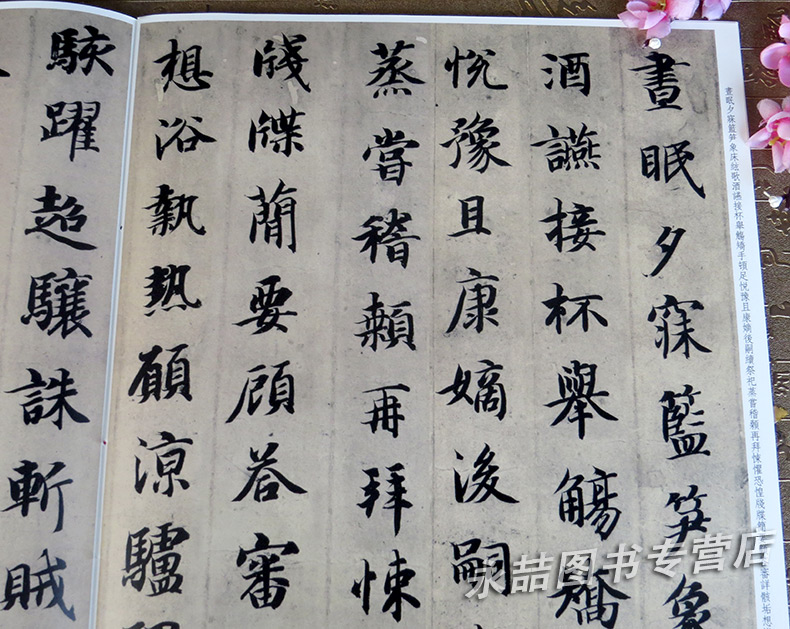 晝眠夕寐籃笋象床絃歌酒讌接杯舉觴矯手頓足悅豫且康嫡後嗣續祭祀蒸嘗稽顙再拜悚懼恐惶牋牒簡
審詳骸垢想
晝眠夕寐籃笋象
酒讌接杯舉觴矯
悅豫且康嫡後嗣
蒸嘗稽顙再拜悚
牋牒簡要顧荅審
想浴執熱願涼驢
駭躍超驤誅斬賊
永喆图书专营店